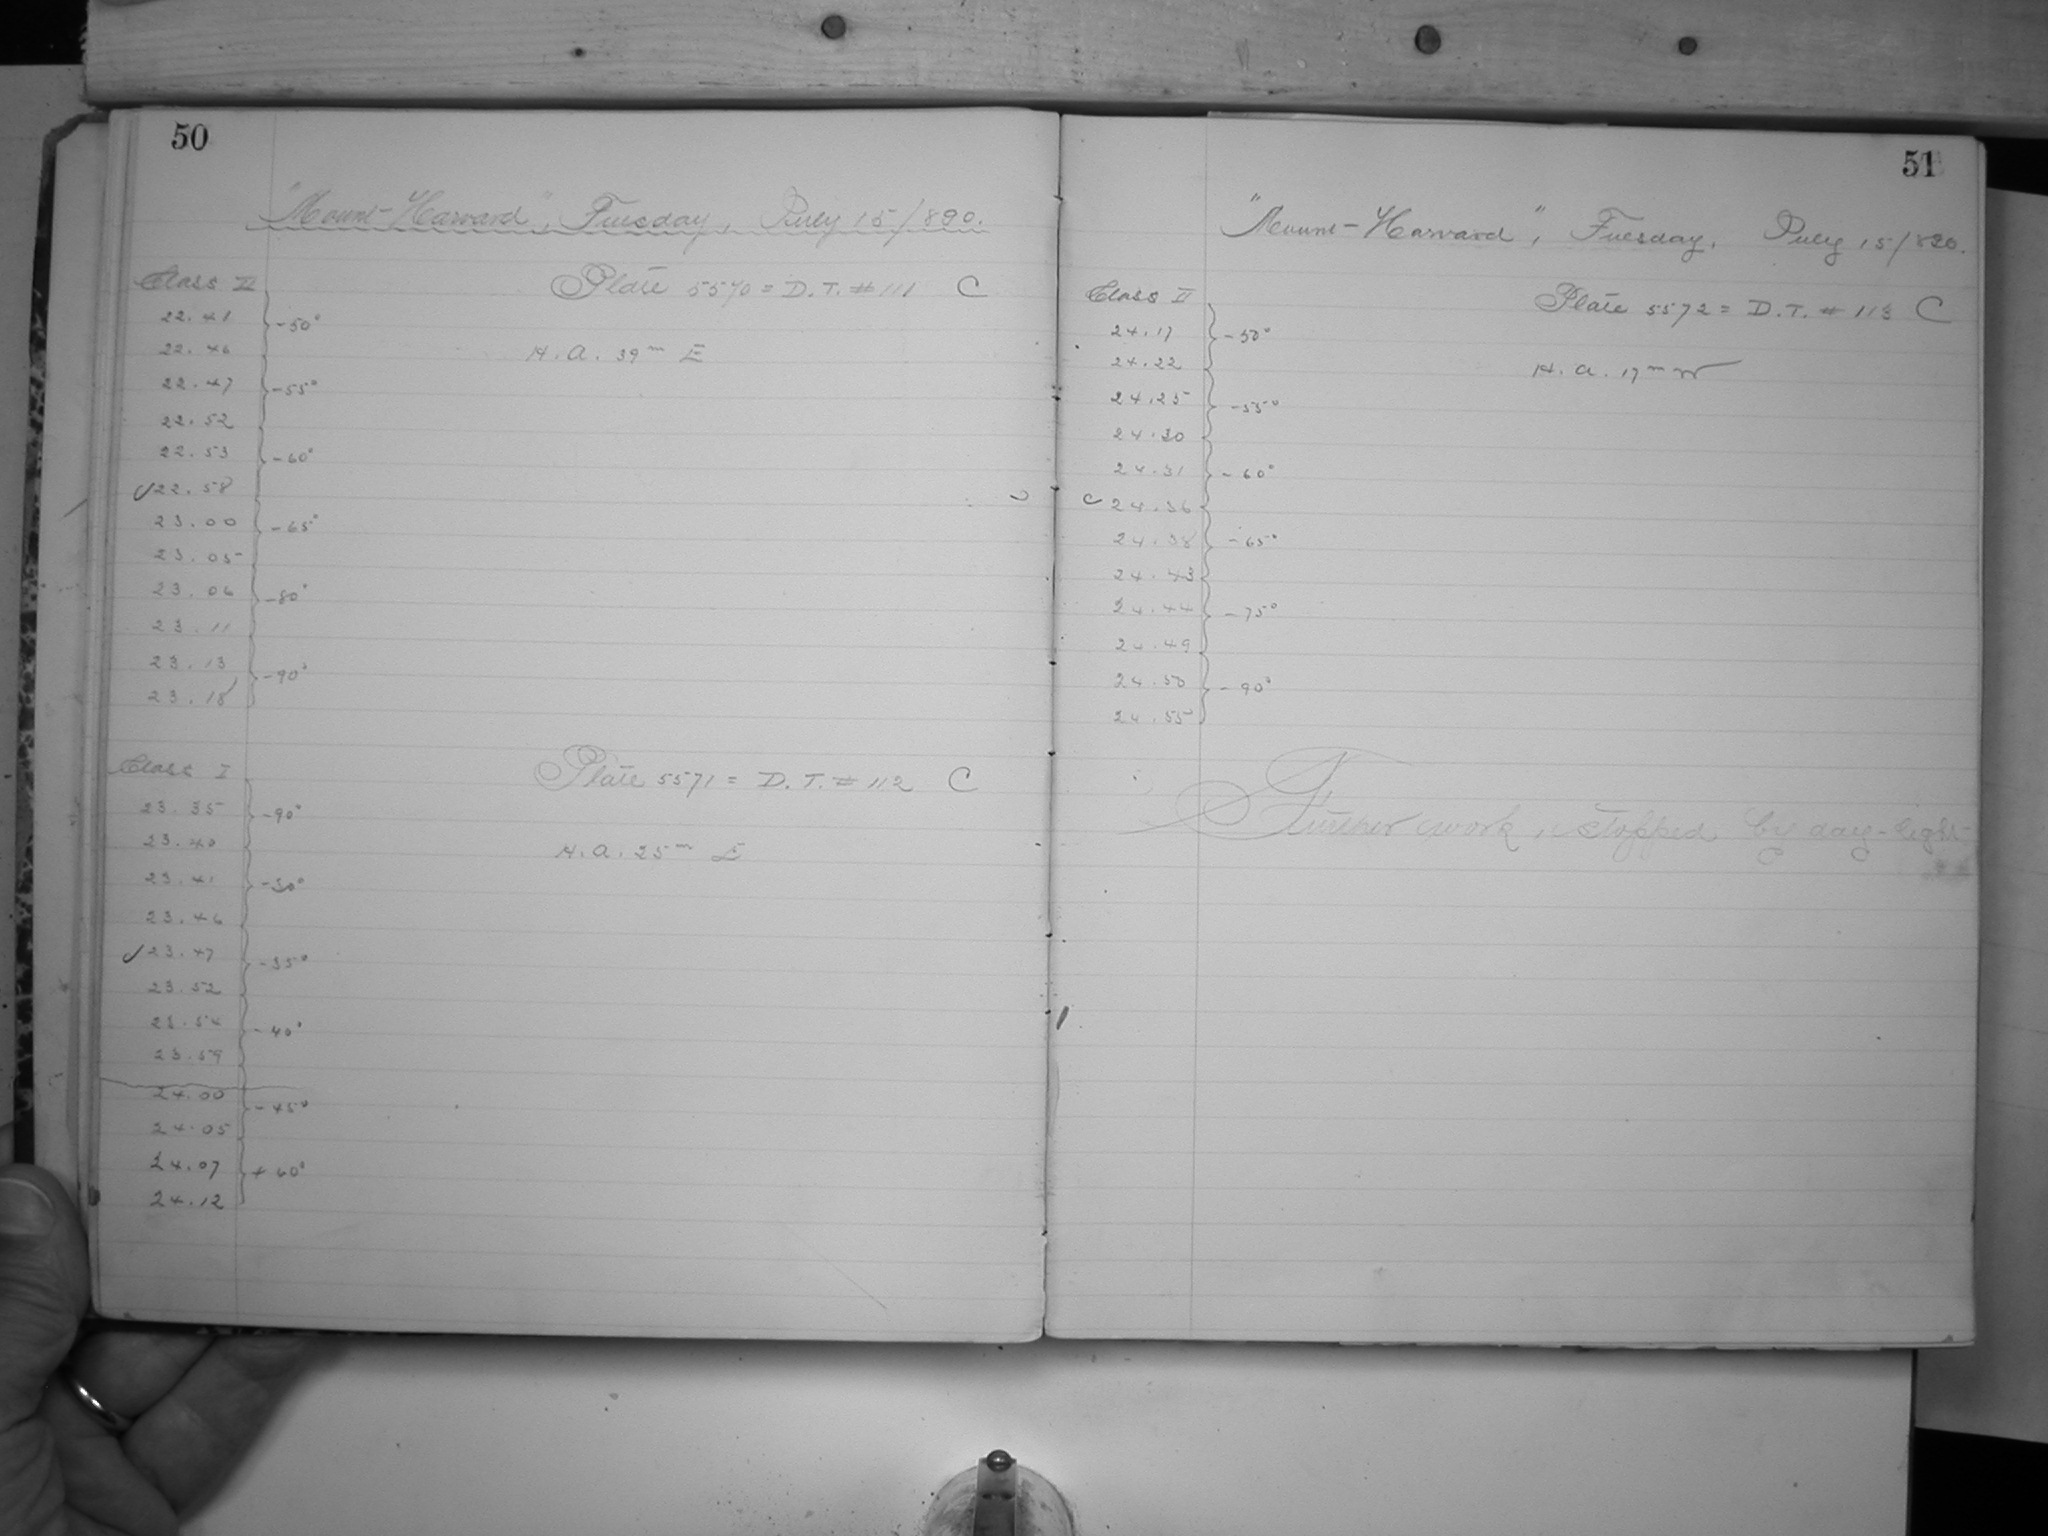 50
"Mount-Harvard", Tuesday, July 15/890.
Class II
Plate 5570 = D.T. # 111 C
22.41
-50°
22.46
H.A. 39ᵐ E
22.47
-55°
22.52
22.53
-60°
22.58
23.00
-65°
23.05
23.06
-80°
23.11
23.13
-90°
23.18
Class I
Plate 5571 = D.T. # 112 C
23.35
-90°
23.40
H.A. 25ᵐ E
23.41
-30°
23.46
23.47
-35°
23.52
23.54
-40°
23.59
24.00
-45°
24.05
24.07
+60°
24.12
51
"Mount-Harvard", Tuesday, July 15/890.
Class II
Plate 5572 = D.T. # 113 C
24.17
-50°
24.22
H.A. 17ᵐ W
24.25
-55°
24.30
24.31
-60°
24.36
24.38
-65°
24.43
24.44
-75°
24.49
24.50
-90°
24.55
Further work, stopped by day-light